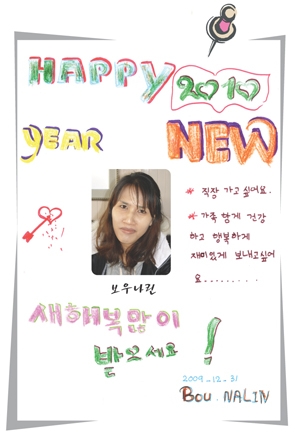 HAPPY 2010
YEAR NEW
* 직장 가고싶어요.
* 가족 함게 건강
하고 행복하게
재미있게 보내고싶어
요.........
보우나린
새해복많이
받으세요!
2009-12-31
Bou. NALIN